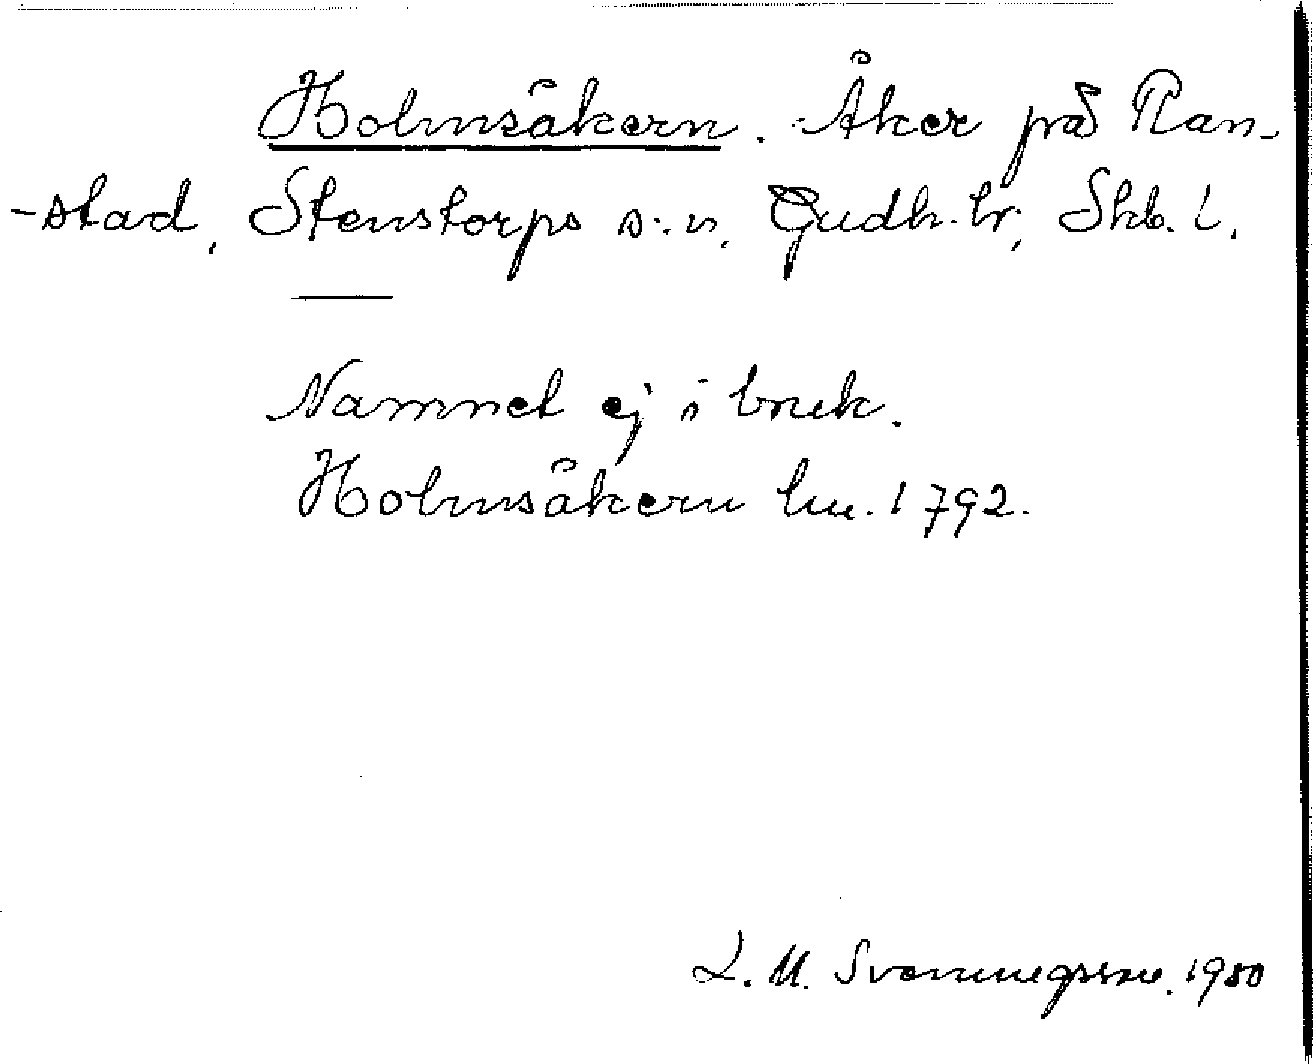 Holmsåkern. Åker på Ran-
-stad, Stenstorps s:n, Gudh. hr, Skb. l.
Namnet ej i bruk.
Holmsåkern lm. 1792.
L. M. Svenungsson. 1930